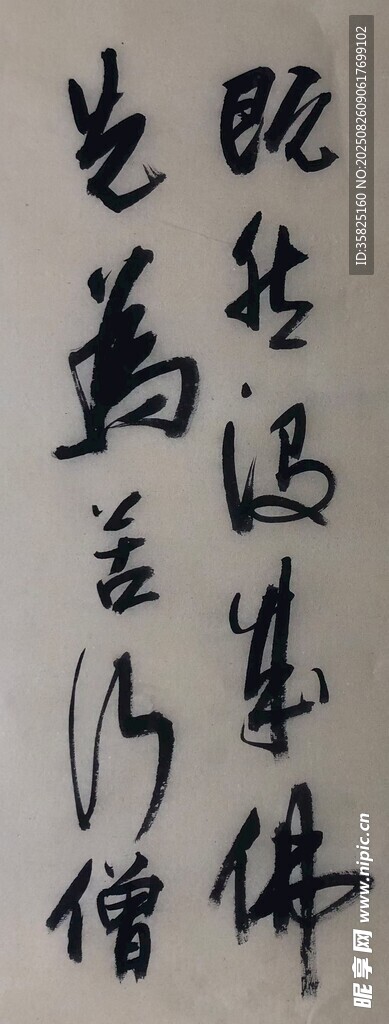 既然没成佛
先为苦行僧
ID:35825160 NO:20250826090617699102
昵享网 www.nipic.cn